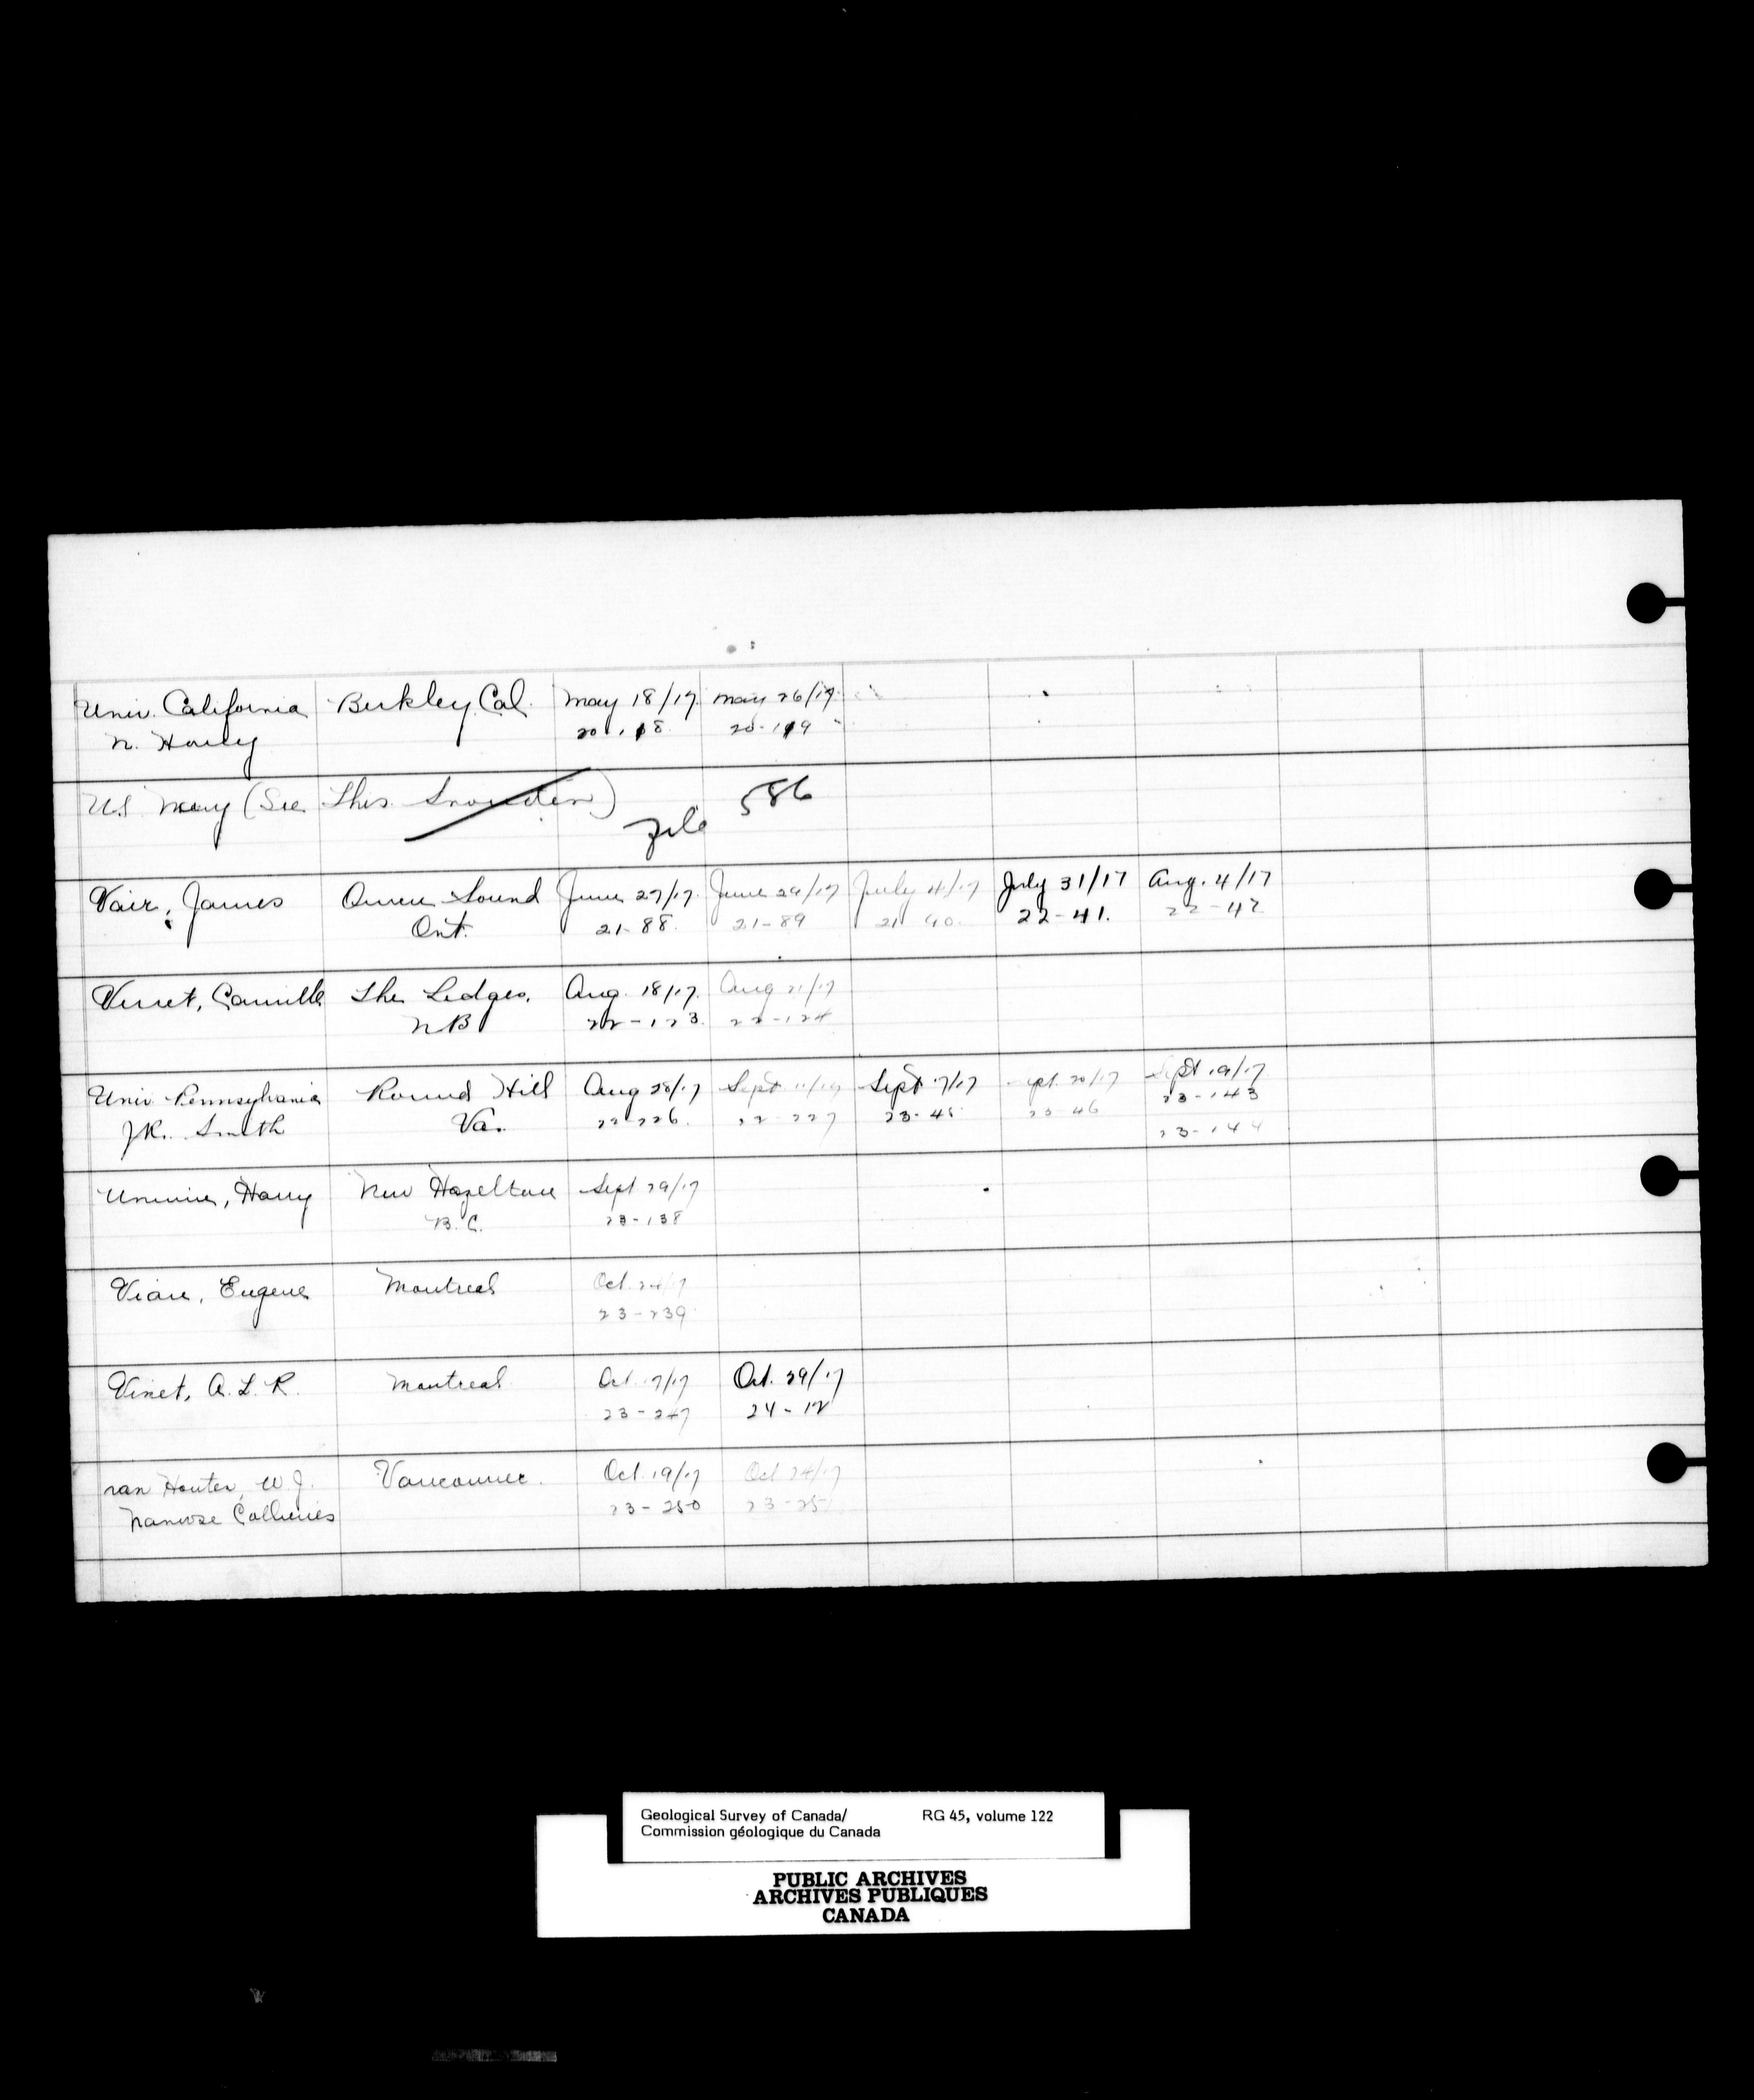 Univ. California Berkley, Cal. May 18/17. May 26/17.
N. Hovey 20-118 20-119
U.S. Navy (See Thos. Snowden) File 586
Vair, James Owen Sound June 27/17. June 29/17 July 4/17 July 31/17 Aug. 4/17
Ont. 21-88. 21-89 21-90. 22-41. 22-42
Camille The Ledges, Aug. 18/17. Aug 21/17
NB 22-123. 22-124
Univ. Pennsylvania Round Hill Aug 28/17 Sept 11/17 Sept 7/17 Sept. 20/17 Sept 19/17
J.R. Smith Va. 22-226. 22-227 23-45 23-46 23-143
23-144
Harry New Hazelton Sept 29/17
B.C. 23-138
Viau, Eugene Montreal Oct. 24/17
23-239
Vinet, A. L. R. Montreal Oct. 17/17 Oct. 29/17
23-247 24-12
van Houten, W.J. Vancouver. Oct. 19/17 Oct 24/17
Nanoose Collieries 23-250 23-251
Geological Survey of Canada/ RG 45, volume 122
Commission géologique du Canada
PUBLIC ARCHIVES
ARCHIVES PUBLIQUES
CANADA